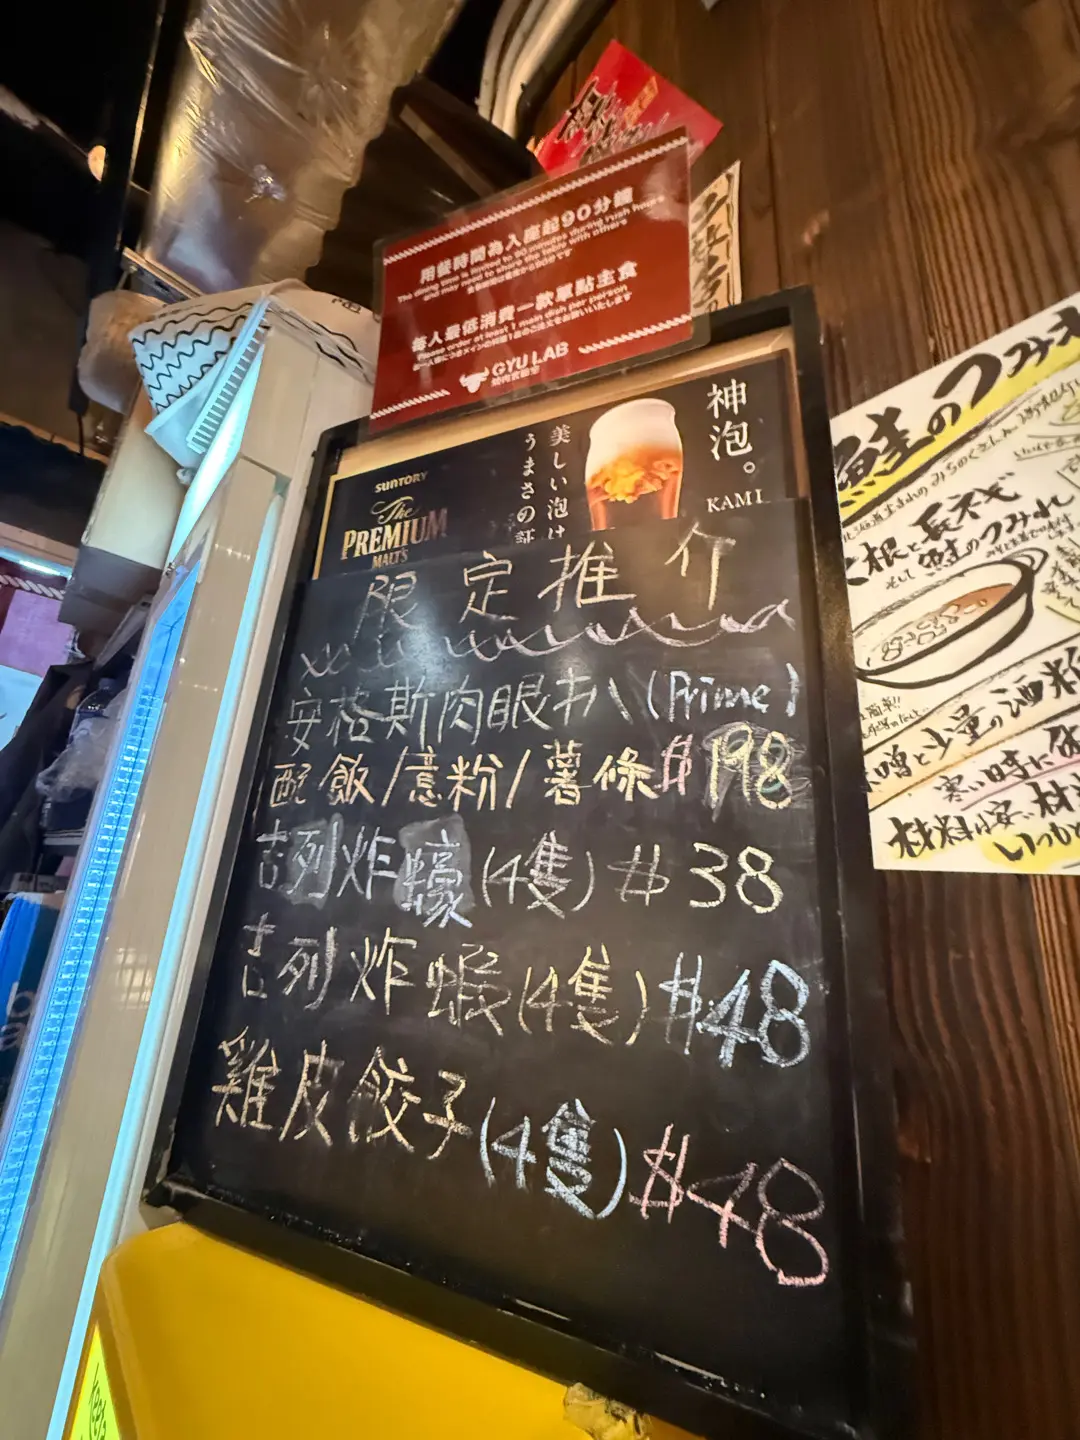 用餐時間為入座起90分鐘
The dining time is limited to 90 minutes during rush hours
and may need to share the table with others
每人最低消費一款單點主食
Please order at least 1 main dish per person
GYU LAB
SUNTORY
The
PREMIUM
MALT'S
美しい泡は
うまさの証
神泡。
KAMI
限定推介
安格斯肉眼扒(Prime)
配飯/意粉/薯條$198
吉列炸蠔(4隻)$38
吉列炸蝦(4隻)$48
雞皮餃子(4隻)$48
鮭のつみ
根と長ネギ
そして鮭のつみれ
簡単!!
味噌と少量の酒粕
寒い日時に
材料は家に材
いつも